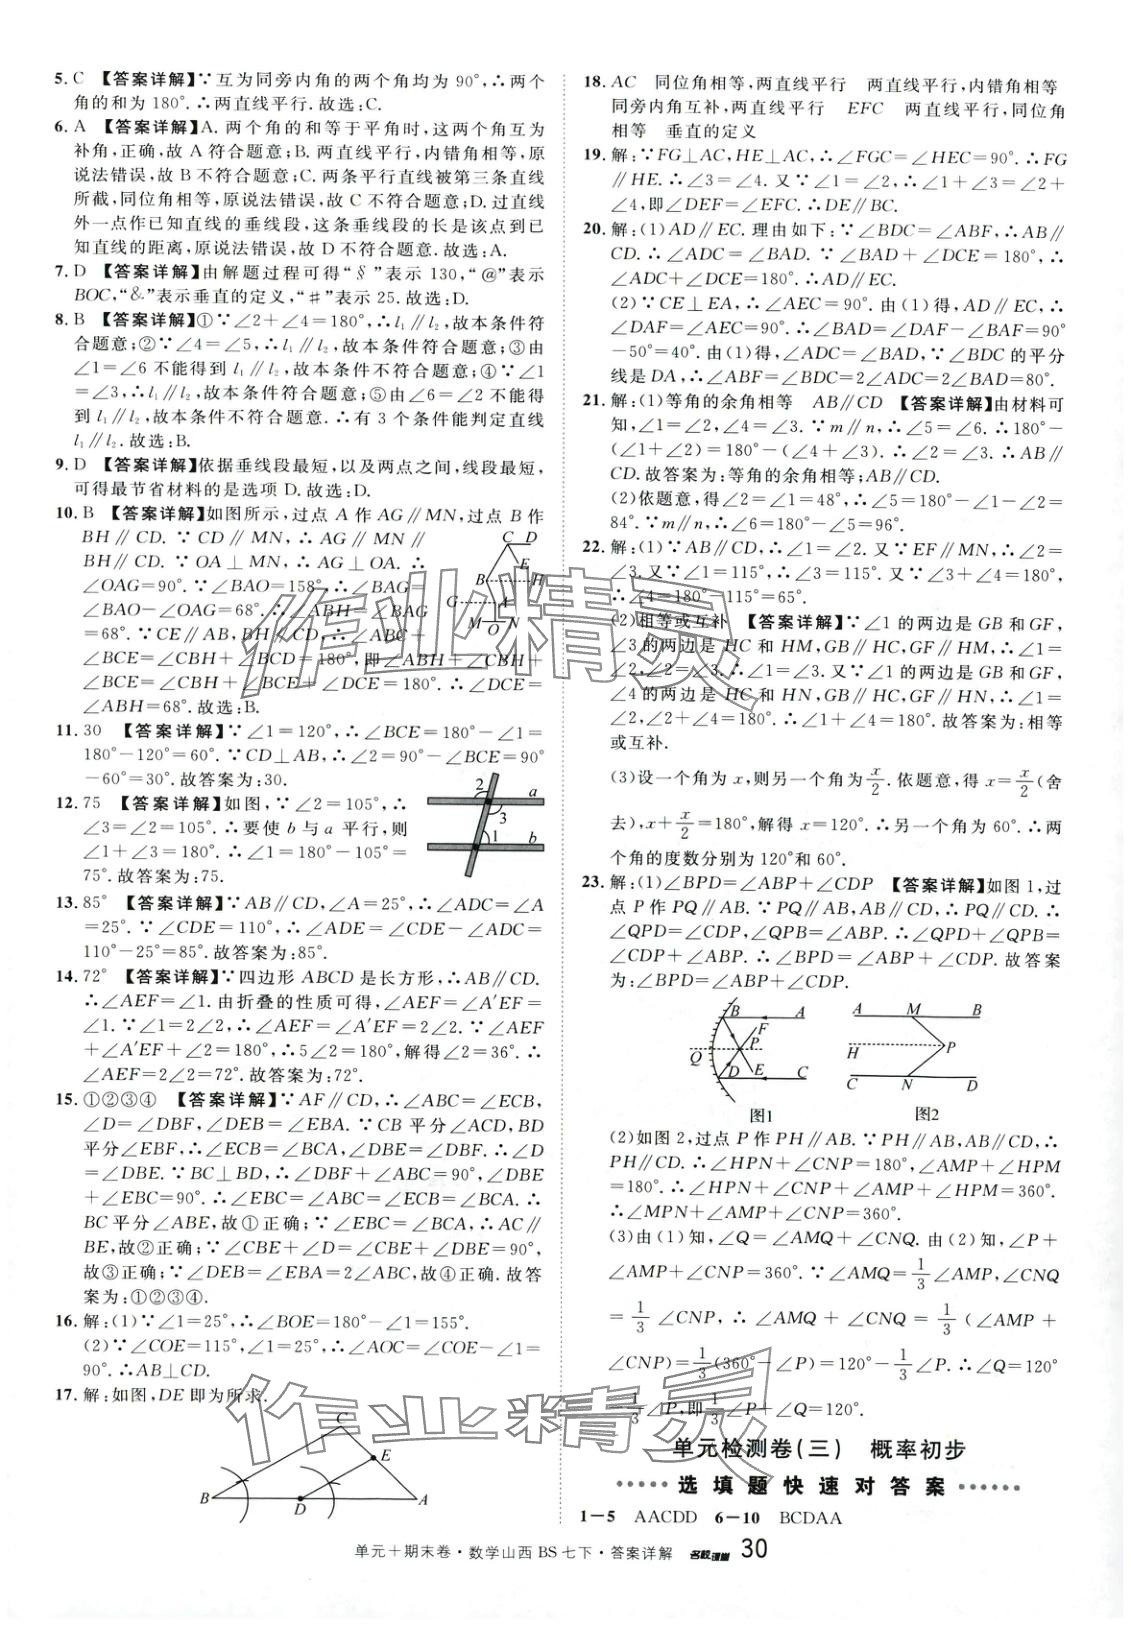 5. C 【答案详解】∵互为同旁内角的两个角均为 90°,∴两个
角的和为 180°.∴两直线平行.故选:C.
6. A 【答案详解】A. 两个角的和等于平角时,这两个角互为
补角,正确,故 A 符合题意;B. 两直线平行,内错角相等,原
说法错误,故 B 不符合题意;C. 两条平行直线被第三条直线
所截,同位角相等,原说法错误,故 C 不符合题意;D. 过直线
外一点作已知直线的垂线段,这条垂线段的长是该点到已
知直线的距离,原说法错误,故 D 不符合题意.故选:A.
7. D 【答案详解】由解题过程可得“§”表示 130,“@”表示
BOC,“&”表示垂直的定义,“#”表示 25.故选:D.
8. B 【答案详解】①∵∠2+∠4=180°,∴l₁∥l₂,故本条件符
合题意;②∵∠4=∠5,∴l₁∥l₂,故本条件符合题意;③由
∠1=∠6 不能得到 l₁∥l₂,故本条件不符合题意;④∵∠1
=∠3,∴l₁∥l₂,故本条件符合题意;⑤由∠6=∠2 不能得
到 l₁∥l₂,故本条件不符合题意.∴有 3 个条件能判定直线
l₁∥l₂.故选:B.
9. D 【答案详解】依据垂线段最短,以及两点之间,线段最短,
可得最节省材料的是选项 D.故选:D.
10. B 【答案详解】如图所示,过点 A 作 AG∥MN,过点 B 作
BH∥CD. ∵CD∥MN,∴AG∥MN∥
BH∥CD. ∵OA⊥MN,∴AG⊥OA. ∴
∠OAG=90°. ∵∠BAO=158°,∴∠BAG=
∠BAO-∠OAG=68°.∴∠ABH=∠BAG
=68°. ∵CE∥AB,BH∥CD,∴∠ABH+
∠BCE=∠CBH+∠BCD=180°,即∠ABH+∠CBH+
∠BCE=∠CBH+∠BCE+∠DCE=180°. ∴∠DCE=
∠ABH=68°.故选:B.
C D
E
B H
G A
M O N
11. 30 【答案详解】∵∠1=120°,∴∠BCE=180°-∠1=
180°-120°=60°. ∵CD⊥AB,∴∠2=90°-∠BCE=90°
-60°=30°.故答案为:30.
12. 75 【答案详解】如图,∵∠2=105°,∴
∠3=∠2=105°.∴要使 b 与 a 平行,则
∠1+∠3=180°.∴∠1=180°-105°=
75°.故答案为:75.
2 a
3
1 b
13. 85° 【答案详解】∵AB∥CD,∠A=25°,∴∠ADC=∠A
=25°. ∵∠CDE=110°,∴∠ADE=∠CDE-∠ADC=
110°-25°=85°.故答案为:85°.
14. 72° 【答案详解】∵四边形 ABCD 是长方形,∴AB∥CD.
∴∠AEF=∠1.由折叠的性质可得,∠AEF=∠A′EF=
∠1. ∵∠1=2∠2,∴∠AEF=∠A′EF=2∠2. ∵∠AEF
+∠A′EF+∠2=180°,∴5∠2=180°,解得∠2=36°.∴
∠AEF=2∠2=72°.故答案为:72°.
15. ①②③④ 【答案详解】∵AF∥CD,∴∠ABC=∠ECB,
∠D=∠DBF,∠DEB=∠EBA. ∵CB 平分∠ACD,BD
平分∠EBF,∴∠ECB=∠BCA,∠DBE=∠DBF. ∴∠D
=∠DBE. ∵BC⊥BD,∴∠DBF+∠ABC=90°,∠DBE
+∠EBC=90°. ∴∠EBC=∠ABC=∠ECB=∠BCA. ∴
BC平分∠ABE,故①正确;∵∠EBC=∠BCA,∴AC∥
BE,故②正确;∵∠CBE+∠D=∠CBE+∠DBE=90°,
故③正确;∵∠DEB=∠EBA=2∠ABC,故④正确.故答
案为:①②③④.
16. 解:(1)∵∠1=25°,∴∠BOE=180°-∠1=155°.
(2)∵∠COE=115°,∠1=25°,∴∠AOC=∠COE-∠1=
90°.∴AB⊥CD.
17. 解:如图,DE 即为所求.
C
E
B D A
18. AC 同位角相等,两直线平行 两直线平行,内错角相等
同旁内角互补,两直线平行 EFC 两直线平行,同位角
相等 垂直的定义
19. 解:∵FG⊥AC,HE⊥AC,∴∠FGC=∠HEC=90°.∴FG
∥HE.∴∠3=∠4.又∵∠1=∠2,∴∠1+∠3=∠2+
∠4,即∠DEF=∠EFC.∴DE∥BC.
20. 解:(1)AD∥EC.理由如下:∵∠BDC=∠ABF,∴AB∥
CD.∴∠ADC=∠BAD. ∵∠BAD+∠DCE=180°,∴
∠ADC+∠DCE=180°.∴AD∥EC.
(2)∵CE⊥EA,∴∠AEC=90°.由(1)得,AD∥EC,∴
∠DAF=∠AEC=90°.∴∠BAD=∠DAF-∠BAF=90°
-50°=40°.由(1)得,∠ADC=∠BAD,∵∠BDC 的平分
线是 DA,∴∠ABF=∠BDC=2∠ADC=2∠BAD=80°.
21. 解:(1)等角的余角相等 AB∥CD 【答案详解】由材料可
知,∠1=∠2,∠4=∠3. ∵m∥n,∴∠5=∠6.∴180°-
(∠1+∠2)=180°-(∠4+∠3).∴∠2=∠3.∴AB∥
CD.故答案为:等角的余角相等;AB∥CD.
(2)依题意,得∠2=∠1=48°,∴∠5=180°-∠1-∠2=
84°. ∵m∥n,∴∠6=180°-∠5=96°.
22. 解:(1)∵AB∥CD,∴∠1=∠2.又∵EF∥MN,∴∠2=
∠3.又∵∠1=115°,∴∠3=115°.又∵∠3+∠4=180°,
∴∠4=180°-115°=65°.
(2)相等或互补 【答案详解】∵∠1 的两边是 GB 和 GF,
∠3 的两边是 HC 和 HM,GB∥HC,GF∥HM,∴∠1=
∠2,∠2=∠3.∴∠1=∠3.又∵∠1 的两边是 GB 和 GF,
∠4 的两边是 HC 和 HN,GB∥HC,GF∥HN,∴∠1=
∠2,∠2+∠4=180°.∴∠1+∠4=180°.故答案为:相等
或互补.
(3)设一个角为 x,则另一个角为x/2.依题意,得 x=x/2(舍
去),x+x/2=180°,解得 x=120°.∴另一个角为 60°.∴两
个角的度数分别为 120°和 60°.
23. 解:(1)∠BPD=∠ABP+∠CDP 【答案详解】如图 1,过
点 P 作 PQ∥AB. ∵PQ∥AB,AB∥CD,∴PQ∥CD. ∴
∠QPD=∠CDP,∠QPB=∠ABP. ∴∠QPD+∠QPB=
∠CDP+∠ABP. ∴∠BPD=∠ABP+∠CDP.故答案
为:∠BPD=∠ABP+∠CDP.
B A
F
Q P
D E C
图1
A M B
H P
C N D
图2
(2)如图 2,过点 P 作 PH∥AB. ∵PH∥AB,AB∥CD,∴
PH∥CD.∴∠HPN+∠CNP=180°,∠AMP+∠HPM
=180°.∴∠HPN+∠CNP+∠AMP+∠HPM=360°.
∴∠MPN+∠AMP+∠CNP=360°.
(3)由(1)知,∠Q=∠AMQ+∠CNQ.由(2)知,∠P+
∠AMP+∠CNP=360°. ∵∠AMQ=1/3∠AMP,∠CNQ
=1/3∠CNP,∴∠AMQ+∠CNQ=1/3(∠AMP+
∠CNP)=1/3(360°-∠P)=120°-1/3∠P.∴∠Q=120°
-1/3∠P,即1/3∠P+∠Q=120°.
单元检测卷(三) 概率初步
选填题快速对答案
1-5 AACDD 6-10 BCDAA
单元+期末卷·数学山西 BS 七下·答案详解 名校课堂 30
作业精灵
作业精灵